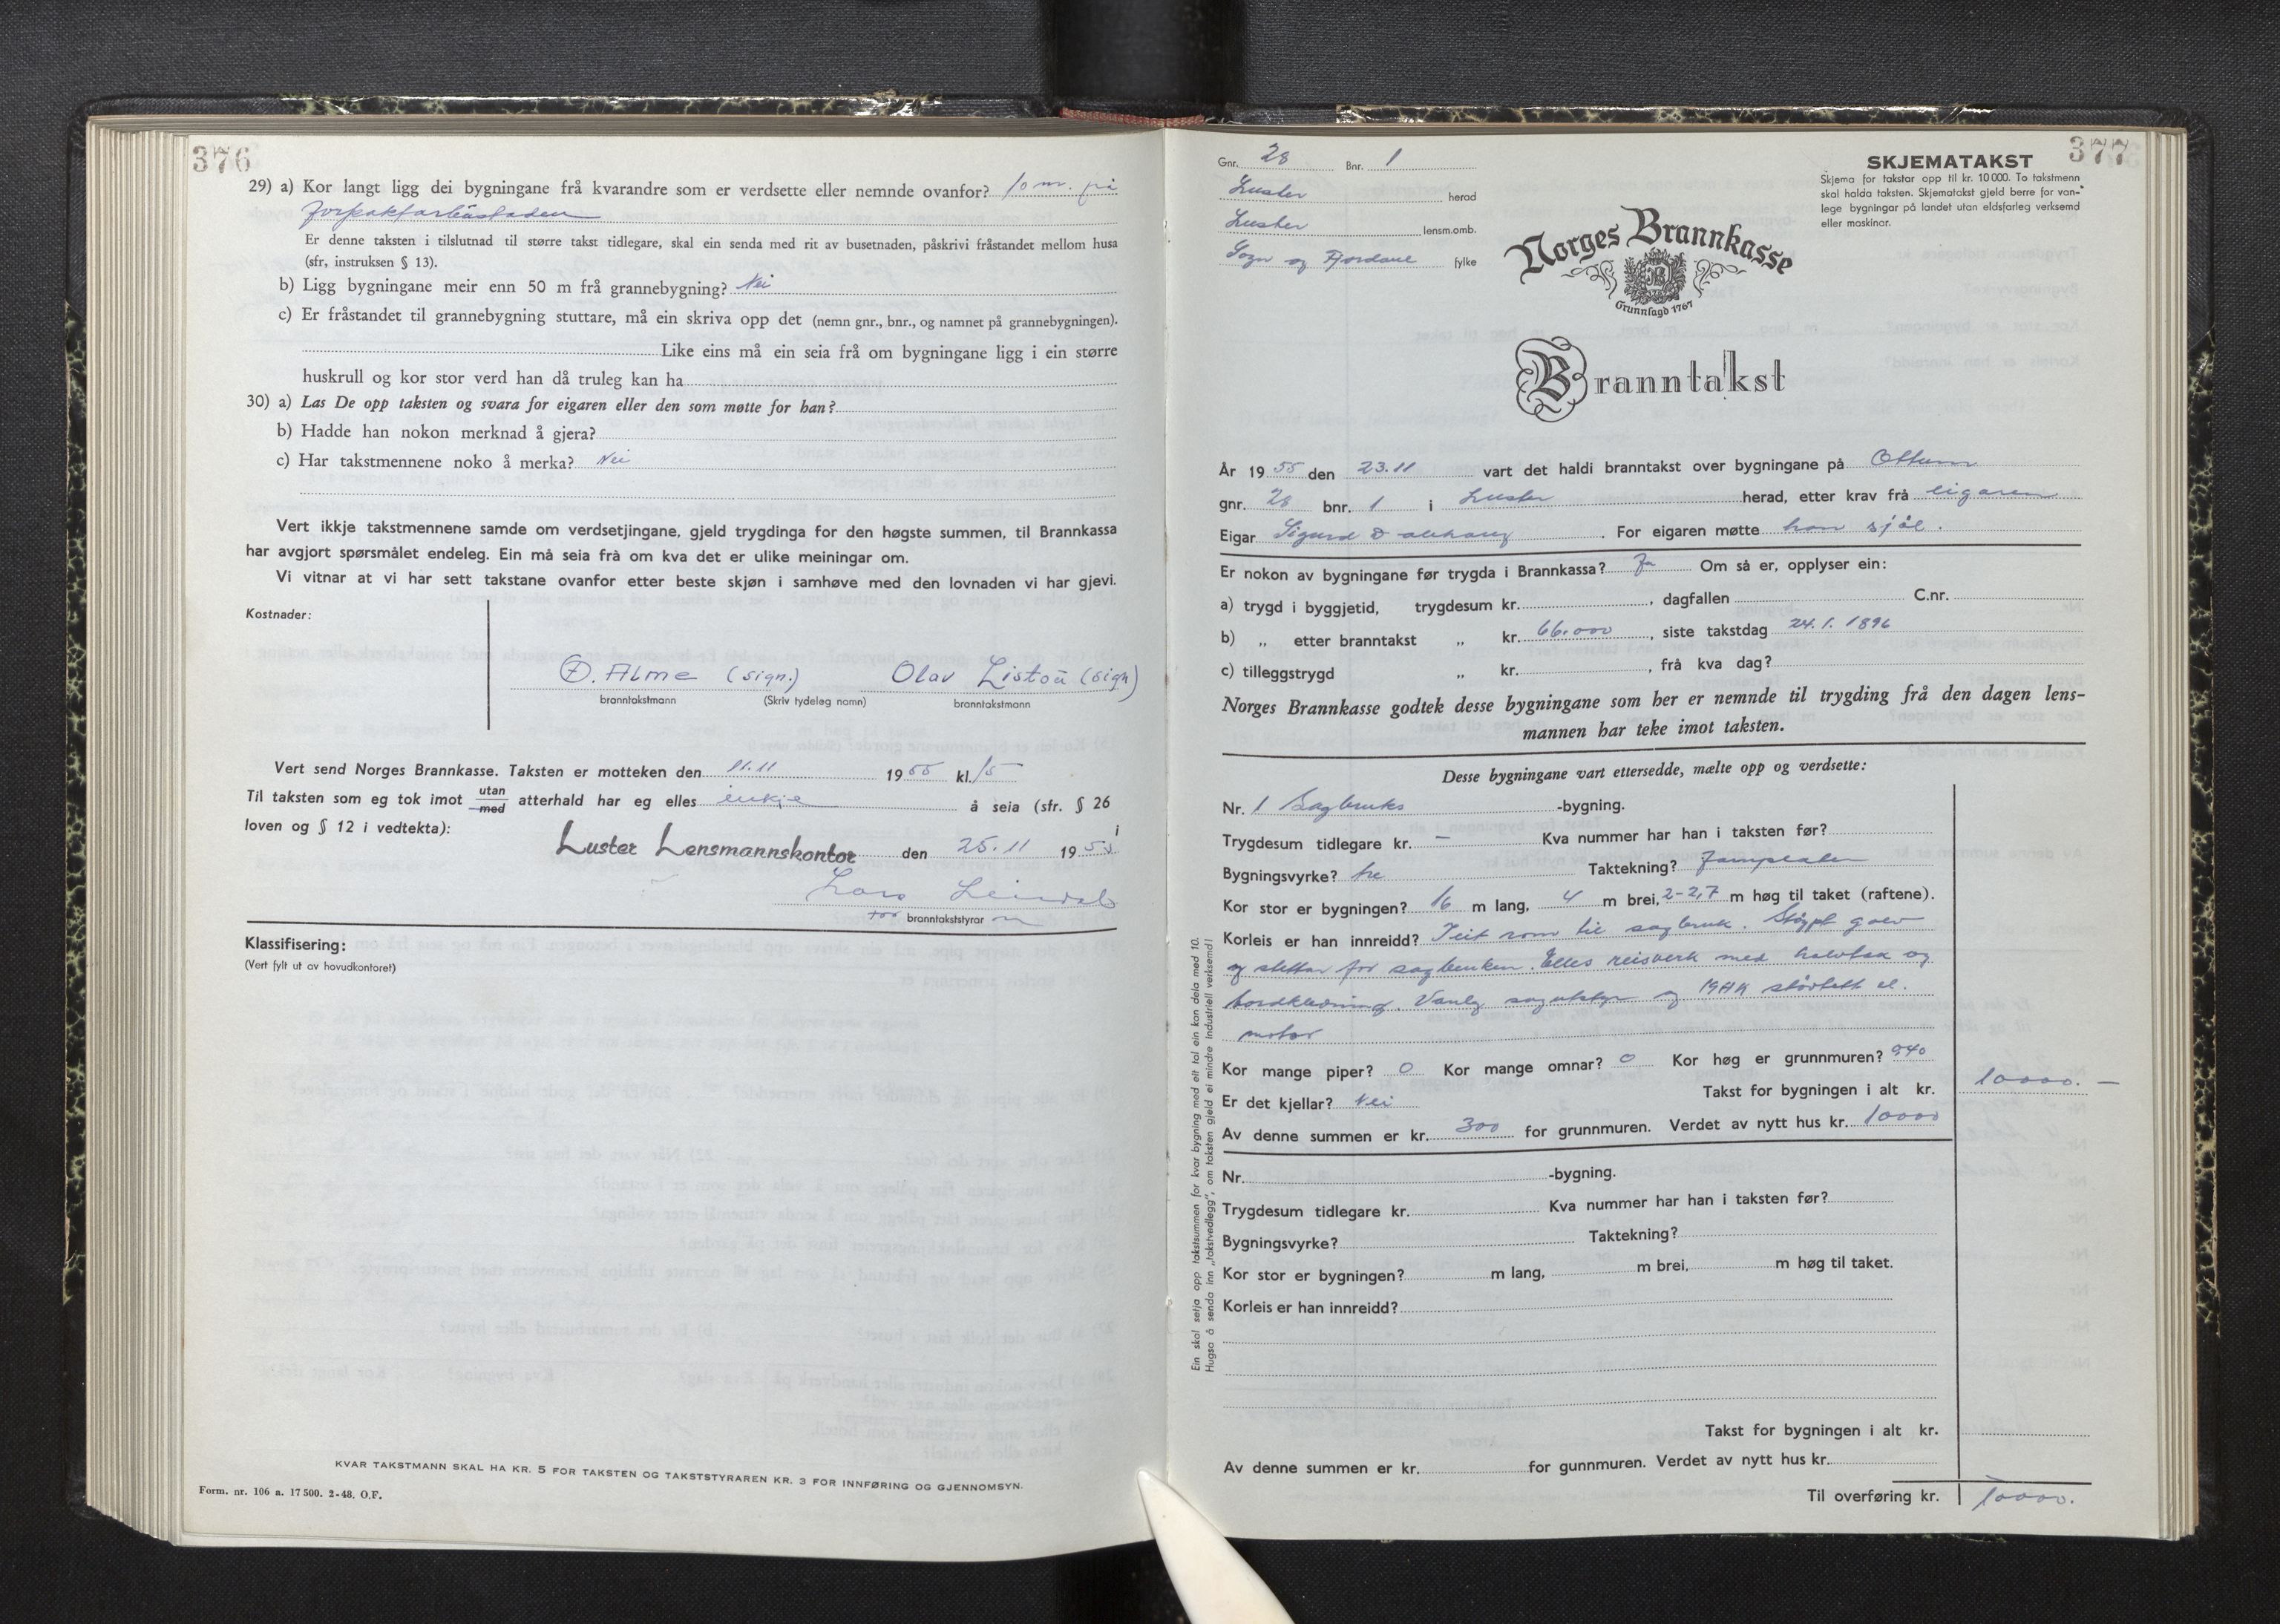 376
29) a) Kor langt ligg dei bygningane frå kvarandre som er verdsette eller nemnde ovanfor? 10 m. frå
forpaktarbustaden
Er denne taksten i tilslutnad til større takst tidlegare, skal ein senda med rit av busetnaden, påskrivi fråstandet mellom husa
(sfr, instruksen § 13).
b) Ligg bygningane meir enn 50 m frå grannebygning? Nei
c) Er fråstandet til grannebygning stuttare, må ein skriva opp det (nemn gnr., bnr., og namnet på grannebygningen).
Like eins må ein seia frå om bygningane ligg i ein større
huskrull og kor stor verd han då truleg kan ha
30) a) Las De opp taksten og svara for eigaren eller den som møtte for han?
b) Hadde han nokon merknad å gjera?
c) Har takstmennene noko å merka? Nei
Vert ikkje takstmennene samde om verdsetjingane, gjeld trygdinga for den høgste summen, til Brannkassa
har avgjort spørsmålet endeleg. Ein må seia frå om kva det er ulike meiningar om.
Vi vitnar at vi har sett takstane ovanfor etter beste skjøn i samhøve med den lovnaden vi har gjevi.
Kostnader:
Ø. Alme (sign.) Olav Listou (sign)
branntakstmann (Skriv tydeleg namn) branntakstmann
Vert send Norges Brannkasse. Taksten er motteken den 11.11 1955 kl. 15
Til taksten som eg tok imot utan med atterhald har eg elles inkje å seia (sfr. § 26 i
loven og § 12 i vedtekta):
Luster Lensmannskontor den 25.11 1955
Lars
for branntakststyrar
Klassifisering:
(Vert fylt ut av hovudkontoret)
KVAR TAKSTMANN SKAL HA KR. 5 FOR TAKSTEN OG TAKSTSTYRAREN KR. 3 FOR INNFØRING OG GJENNOMSYN.
Form. nr. 106 a. 17 500. 2-48. O.F.
377
Gnr. 28 Bnr. 1
Luster herad
Luster lensm.omb.
Sogn og Fjordane fylke
SKJEMATAKST
Skjema for takstar opp til kr. 10 000. To takstmenn
skal halda taksten. Skjematakst gjeld berre for van-
lege bygningar på landet utan eldsfarleg verksemd
eller maskinar.
Norges Brannkasse
Grunnlagd 1767
Branntakst
År 1955 den 23.11 vart det haldi branntakst over bygningane på Ottum
gnr. 28 bnr. 1 i Luster herad, etter krav frå eigaren
Eigar Sigurd Dalehaug. For eigaren møtte han sjøl.
Er nokon av bygningane før trygda i Brannkassa? Ja Om så er, opplyser ein:
a) trygd i byggjetid, trygdesum kr. , dagfallen C.nr.
b) „ etter branntakst „ kr. 66.000, siste takstdag 24.1.1896
c) tilleggstrygd „ kr. , frå kva dag?
Norges Brannkasse godtek desse bygningane som her er nemnde til trygding frå den dagen lens-
mannen har teke imot taksten.
Desse bygningane vart ettersedde, mælte opp og verdsette:
Nr. 1 Sagbruks -bygning.
Trygdesum tidlegare kr. – Kva nummer har han i taksten før?
Bygningsvyrke? tre Taktekning? Jarnplater
Kor stor er bygningen? 16 m lang, 4 m brei, 2-2,7 m høg til taket (raftene).
Korleis er han innreidd? Eit rom til sagbruk. Støypt golv
og støttar for sagbenken. Elles reisverk med halvtak og
bordkledning. Vanleg sagutstyr og 19HK støvtett el.
motor
Kor mange piper? 0 Kor mange omnar? 0 Kor høg er grunnmuren? 940
Er det kjellar? Nei Takst for bygningen i alt kr. 10000.–
Av denne summen er kr. 300 for grunnmuren. Verdet av nytt hus kr. 10000
Nr. -bygning.
Trygdesum tidlegare kr. Kva nummer har han i taksten før?
Bygningsvyrke? Taktekning?
Kor stor er bygningen? m lang, m brei, m høg til taket.
Korleis er han innreidd?
Takst for bygningen i alt kr.
Av denne summen er kr. for gunnmuren. Verdet av nytt hus kr.
Til overføring kr. 10000.
Ein skal setja opp takstsummen for kvar bygning med eit tal ein kan dela med 10.
Hugsa å senda inn „takstvedlegg", om taksten gjeld ei mindre industriell verksemd!